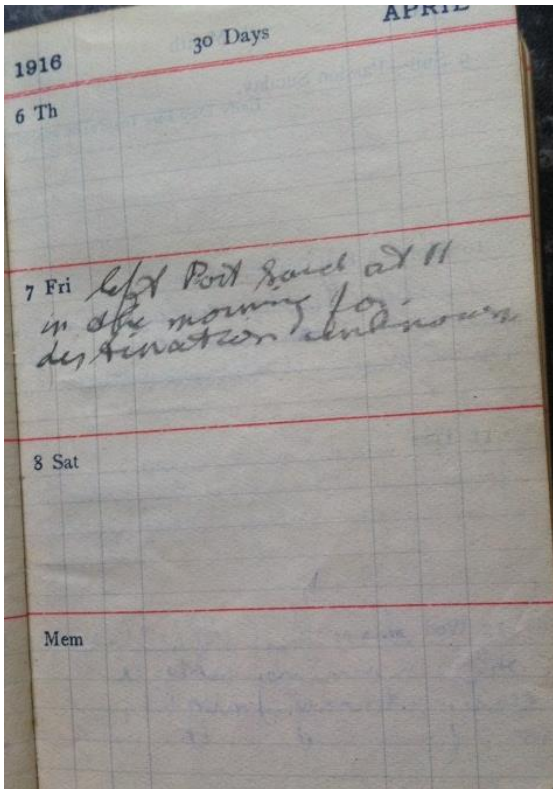 1916 30 Days APRIL
6 Th
7 Fri left Port Said at 11
in the morning for
destination unknown
8 Sat
Mem